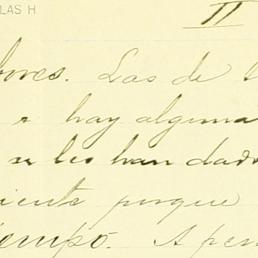 LAS H
II
bores. Las de
hay alguna
se les han dado
iente porque
iempo. A pen